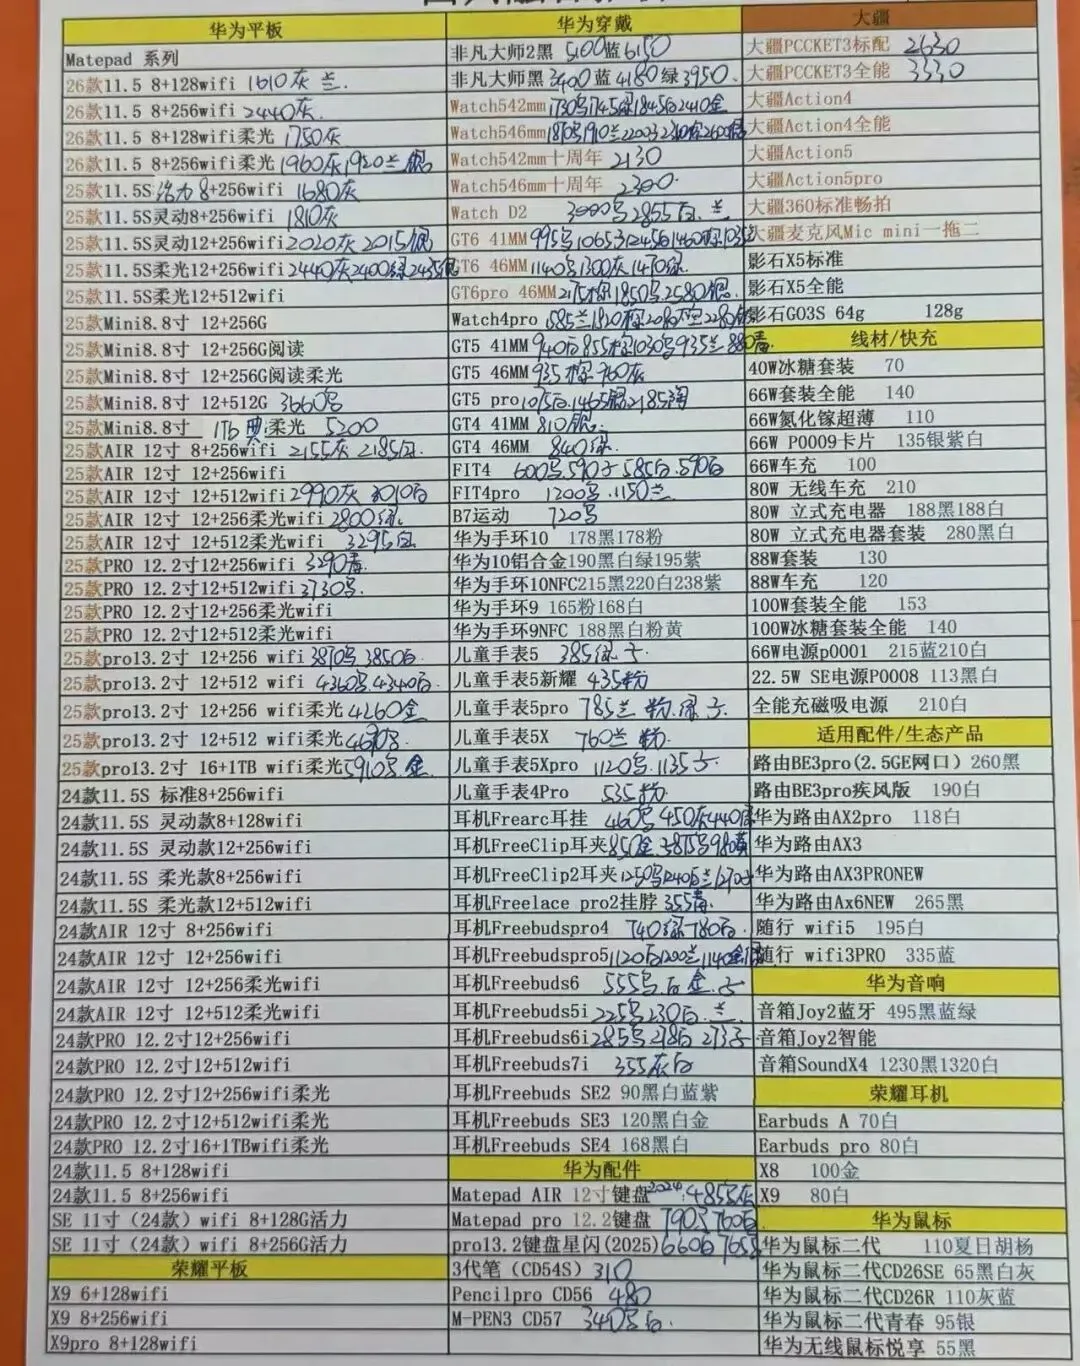 华为平板
Matepad 系列
26款11.5 8+128wifi 1610灰 兰.
26款11.5 8+256wifi 2440灰.
26款11.5 8+128wifi柔光 1750灰
26款11.5 8+256wifi柔光 1960灰1920兰银
25款11.5S活力8+256wifi 1680灰
25款11.5S灵动8+256wifi 1810灰
25款11.5S灵动12+256wifi 2020灰 2015银
25款11.5S柔光12+256wifi 2440灰2400绿2455银
25款11.5S柔光12+512wifi
25款Mini8.8寸 12+256G
25款Mini8.8寸 12+256G阅读
25款Mini8.8寸 12+256G阅读柔光
25款Mini8.8寸 12+512G 3660
25款Mini8.8寸 1Tb 柔光 5200
25款AIR 12寸 8+256wifi 2155灰 2185白.
25款AIR 12寸 12+256wifi
25款AIR 12寸 12+512wifi 2990灰 3010白
25款AIR 12寸 12+256柔光wifi 2800绿.
25款AIR 12寸 12+512柔光wifi 3295白
25款PRO 12.2寸12+256wifi 3290青.
25款PRO 12.2寸12+512wifi 3730
25款PRO 12.2寸12+256柔光wifi
25款PRO 12.2寸12+512柔光wifi
25款pro13.2寸 12+256 wifi 3870 3850白.
25款pro13.2寸 12+512 wifi 4360 4340白.
25款pro13.2寸 12+256 wifi柔光 4260金
25款pro13.2寸 12+512 wifi柔光 4690
25款pro13.2寸 16+1TB wifi柔光 5910 金.
24款11.5S 标准8+256wifi
24款11.5S 灵动款8+128wifi
24款11.5S 灵动款12+256wifi
24款11.5S 柔光款8+256wifi
24款11.5S 柔光款12+512wifi
24款AIR 12寸 8+256wifi
24款AIR 12寸 12+256wifi
24款AIR 12寸 12+256柔光wifi
24款AIR 12寸 12+512柔光wifi
24款PRO 12.2寸12+256wifi
24款PRO 12.2寸12+512wifi
24款PRO 12.2寸12+256wifi柔光
24款PRO 12.2寸12+512wifi柔光
24款PRO 12.2寸16+1TBwifi柔光
24款11.5 8+128wifi
24款11.5 8+256wifi
SE 11寸（24款）wifi 8+128G活力
SE 11寸（24款）wifi 8+256G活力
荣耀平板
X9 6+128wifi
X9 8+256wifi
X9pro 8+128wifi
华为穿戴
非凡大师2黑 5100蓝6150
非凡大师黑3400蓝4180绿3950.
Watch542mm
Watch546mm
Watch542mm十周年 2130
Watch546mm十周年 2300.
Watch D2 3000 2855白.兰
GT6 41MM 995
GT6 46MM 1140 1300灰1470绿.
GT6pro 46MM 2175棕1850 2580银.
Watch4pro 1585兰1820棕
GT5 41MM 940白855棕1030 935兰880青.
GT5 46MM 935棕760灰
GT5 pro 1015白.1465银.2185陶
GT4 41MM 810银.
GT4 46MM 840绿.
FIT4 600 590子585白.590白
FIT4pro 1200 1150兰.
B7运动 720
华为手环10 178黑178粉
华为10铝合金190黑白绿195紫
华为手环10NFC215黑220白238紫
华为手环9 165粉168白
华为手环9NFC 188黑白粉黄
儿童手表5 385绿子.
儿童手表5新耀 435粉
儿童手表5pro 785兰 粉.绿子
儿童手表5X 760兰 粉.
儿童手表5Xpro 1120 1135子.
儿童手表4Pro 535粉
耳机Frearc耳挂 460 450灰440绿
耳机FreeClip耳夹850金.
耳机FreeClip2耳夹1250 1240白兰1270子
耳机Freelace pro2挂脖 355青.
耳机Freebudspro4 740绿780白.
耳机Freebudspro5 1120白1200兰1140金
耳机Freebuds6 555 白 金.子
耳机Freebuds5i 225 230白.兰.
耳机Freebuds6i 285 278白 273子
耳机Freebuds7i 355灰白
耳机Freebuds SE2 90黑白蓝紫
耳机Freebuds SE3 120黑白金
耳机Freebuds SE4 168黑白
华为配件
Matepad AIR 12寸键盘2024:485灰
Matepad pro 12.2键盘 790 760白
pro13.2键盘星闪(2025)660白
3代笔（CD54S）310
Pencilpro CD56 480
M-PEN3 CD57 340 白.
大疆
大疆PCCKET3标配 2630
大疆PCCKET3全能 3330
大疆Action4
大疆Action4全能
大疆Action5
大疆Action5pro
大疆360标准畅拍
大疆麦克风Mic mini一拖二
影石X5标准
影石X5全能
影石GO3S 64g 128g
线材/快充
40W冰糖套装 70
66W套装全能 140
66W氮化镓超薄 110
66W P0009卡片 135银紫白
66W车充 100
80W 无线车充 210
80W 立式充电器 188黑188白
80W 立式充电器套装 280黑白
88W套装 130
88W车充 120
100W套装全能 153
100W冰糖套装全能 140
66W电源p0001 215蓝210白
22.5W SE电源P0008 113黑白
全能充磁吸电源 210白
适用配件/生态产品
路由BE3pro(2.5GE网口) 260黑
路由BE3pro疾风版 190白
华为路由AX2pro 118白
华为路由AX3
华为路由AX3PRONEW
华为路由Ax6NEW 265黑
随行 wifi5 195白
随行 wifi3PRO 335蓝
华为音响
音箱Joy2蓝牙 495黑蓝绿
音箱Joy2智能
音箱SoundX4 1230黑1320白
荣耀耳机
Earbuds A 70白
Earbuds pro 80白
X8 100金
X9 80白
华为鼠标
华为鼠标二代 110夏日胡杨
华为鼠标二代CD26SE 65黑白灰
华为鼠标二代CD26R 110灰蓝
华为鼠标二代青春 95银
华为无线鼠标悦享 55黑